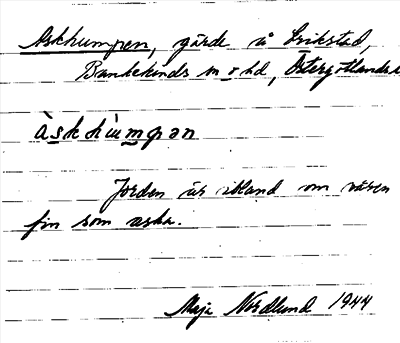 Askhumpen, gärde å Erikstad,
Bankekinds sn o hd, Östergötlands l
àskhùmpən
Jorden är ibland om våren
fin som aska.
Maja Nordlund 1944